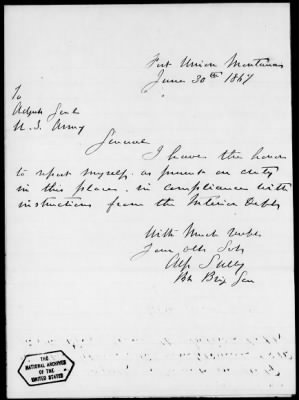 Fort Union Montana
June 30th 1867
To
Adjutt Genl
U. S. Army
General
I have the honor
to report myself as present on duty
in this place in compliance with
instructions from the Interior Dept
With Much respt
Your Obt Svt
Alf Sully
Bt Brig Gen
THE
NATIONAL ARCHIVES
OF THE
UNITED STATES